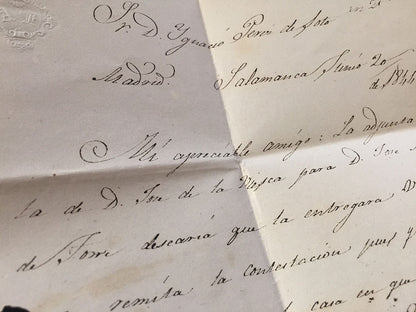 Sr. D. Ygnacio Perez de Soto
Madrid.
Salamanca Junio 20
de 1844
Mi apreciable amigo: La adjunta
ta de D. Jose de la Riosca para D. Jose
de Torre desearia que la entregara
remita la contestacion pues
casa en que